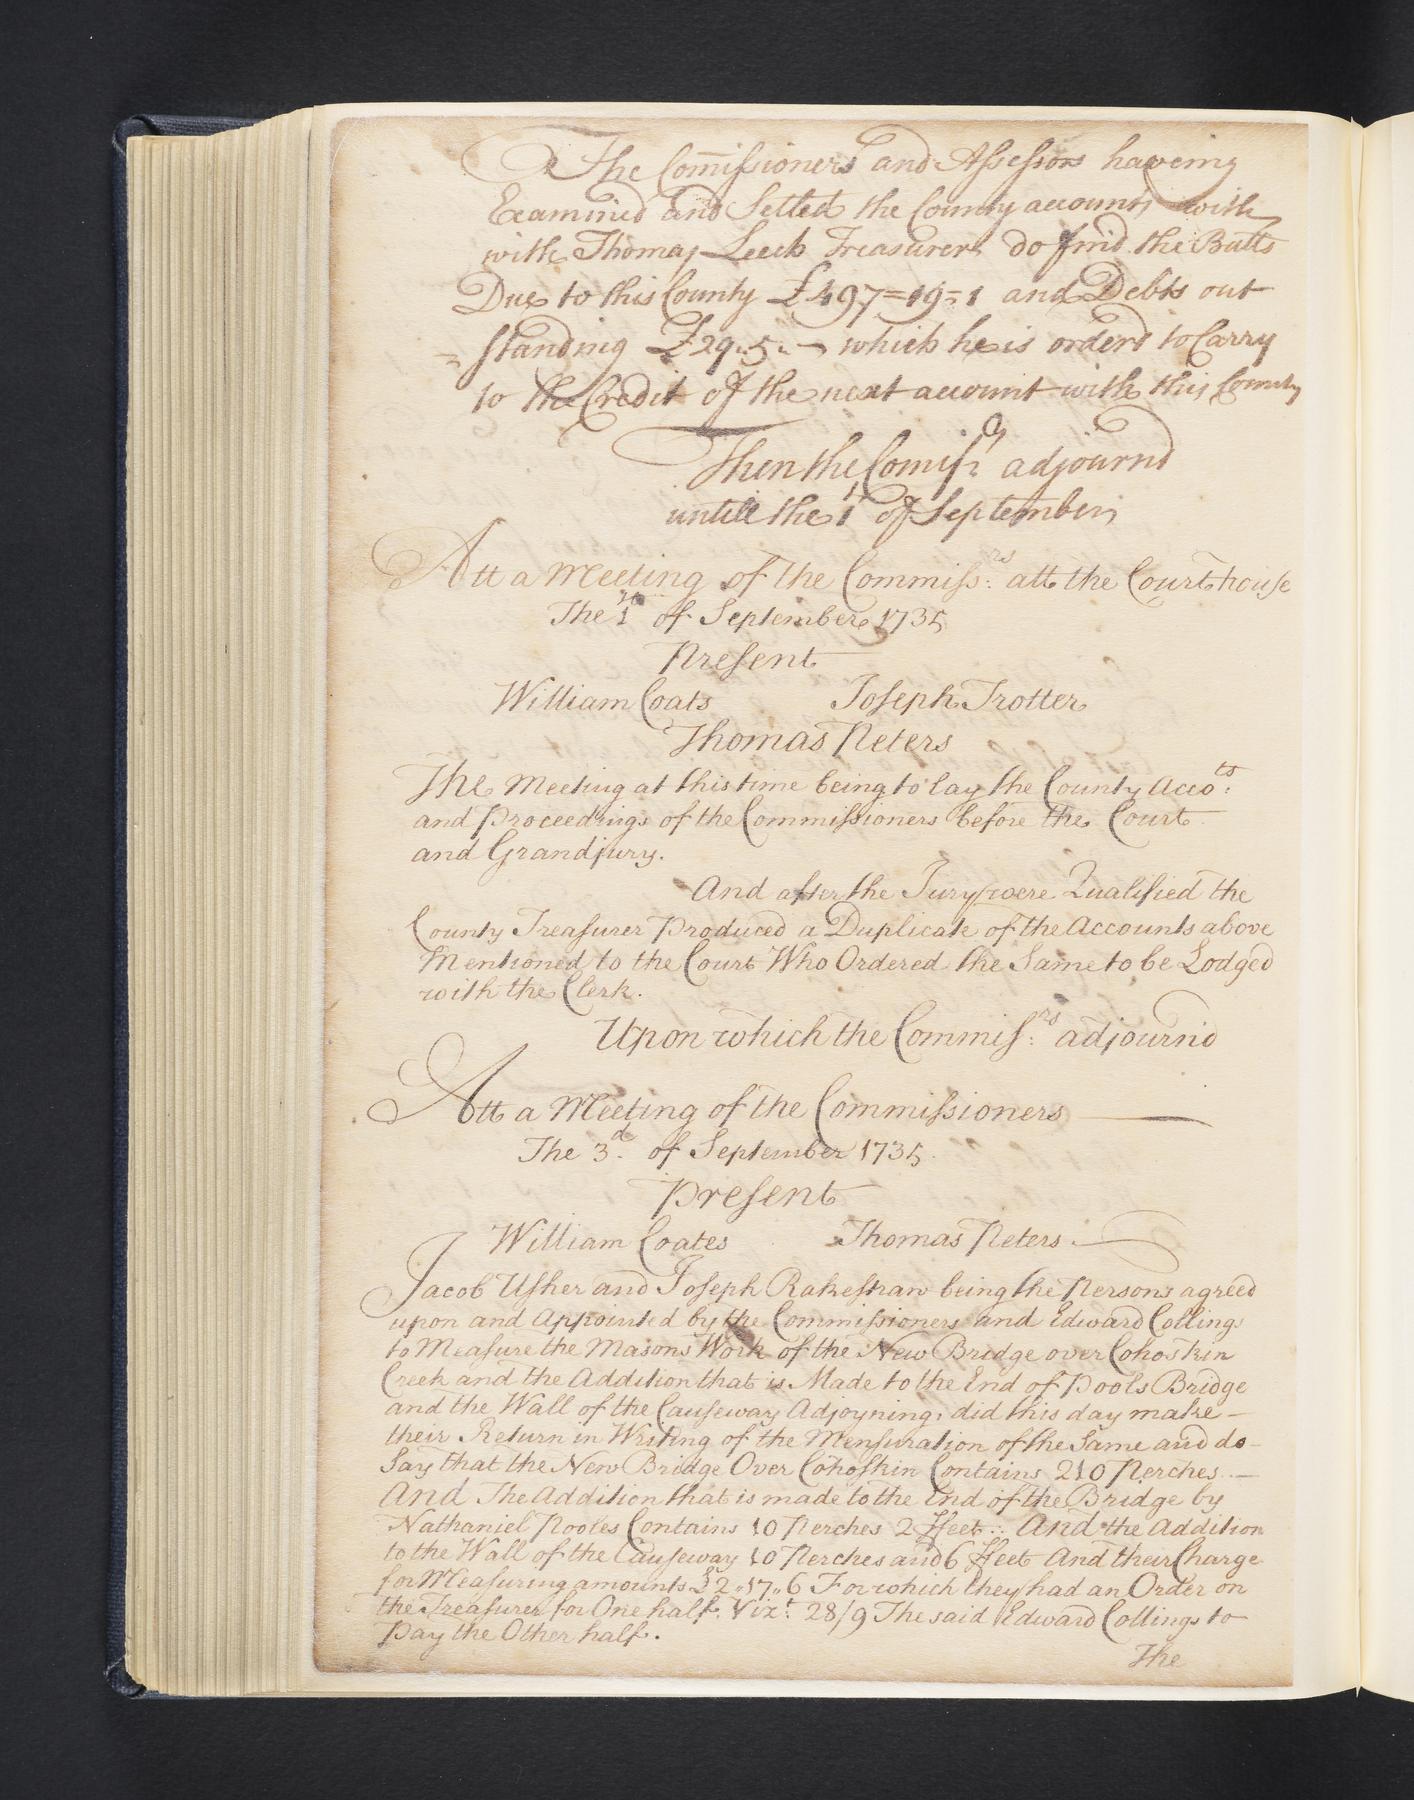 The Com̄issioners and Assessors haveing
Examined and Setled the County accounts with
with Thomas Leech Treasurer do find the Balls
Due to this County £497=19=1 and Debts out
= standing £29..5.. — which he is orderd to Carry
to the Credit of the next account with this County
Then the Comissrs adjournd
untill the 1t of September;
Att a Meeting of the Commissrs: att the Courthouse
The 1st of September 1735
Present
William Coats Joseph Trotter
Thomas Peters
The Meeting at this time being to lay the County Accots:
and Proceedings of the Commissioners before the Court
and Grandjury.
And after the Jury were Qualified the
County Treasurer Produced a Duplicate of the Accounts above
Mentioned to the Court Who Ordered the Same to be Lodged
with the Clerk.
Upon which the Commissrs: adjournd
Att a Meeting of the Commissioners
The 3d. of September 1735
Present
William Coates Thomas Peters
Jacob Usher and Joseph Rakestraw being the Persons agreed
upon and Appointed by the Commissioners and Edward Collings
to Measure the Masons Work of the New Bridge over Cohoskin
Creek and the Addition that is Made to the End of Pools Bridge
and the Wall of the Causeway Adjoyning, did this day make —
their Return in Writing of the Mensuration of the Same and do —
Say that the New Bridge Over Cohoskin Contains 210 Perches. —
And The Addition that is made to the End of the Bridge by
Nathaniel Pooles Contains 10 Perches 2 ffeet: And the Addition
to the Wall of the Causeway 10 Perches and 6 ffeet And their Charge
for Measuring amounts £2..17..6 For which they had an Order on
the Treasurer for One half. Vizt: 28/9 The said Edward Collings to
Pay the Other half.
The